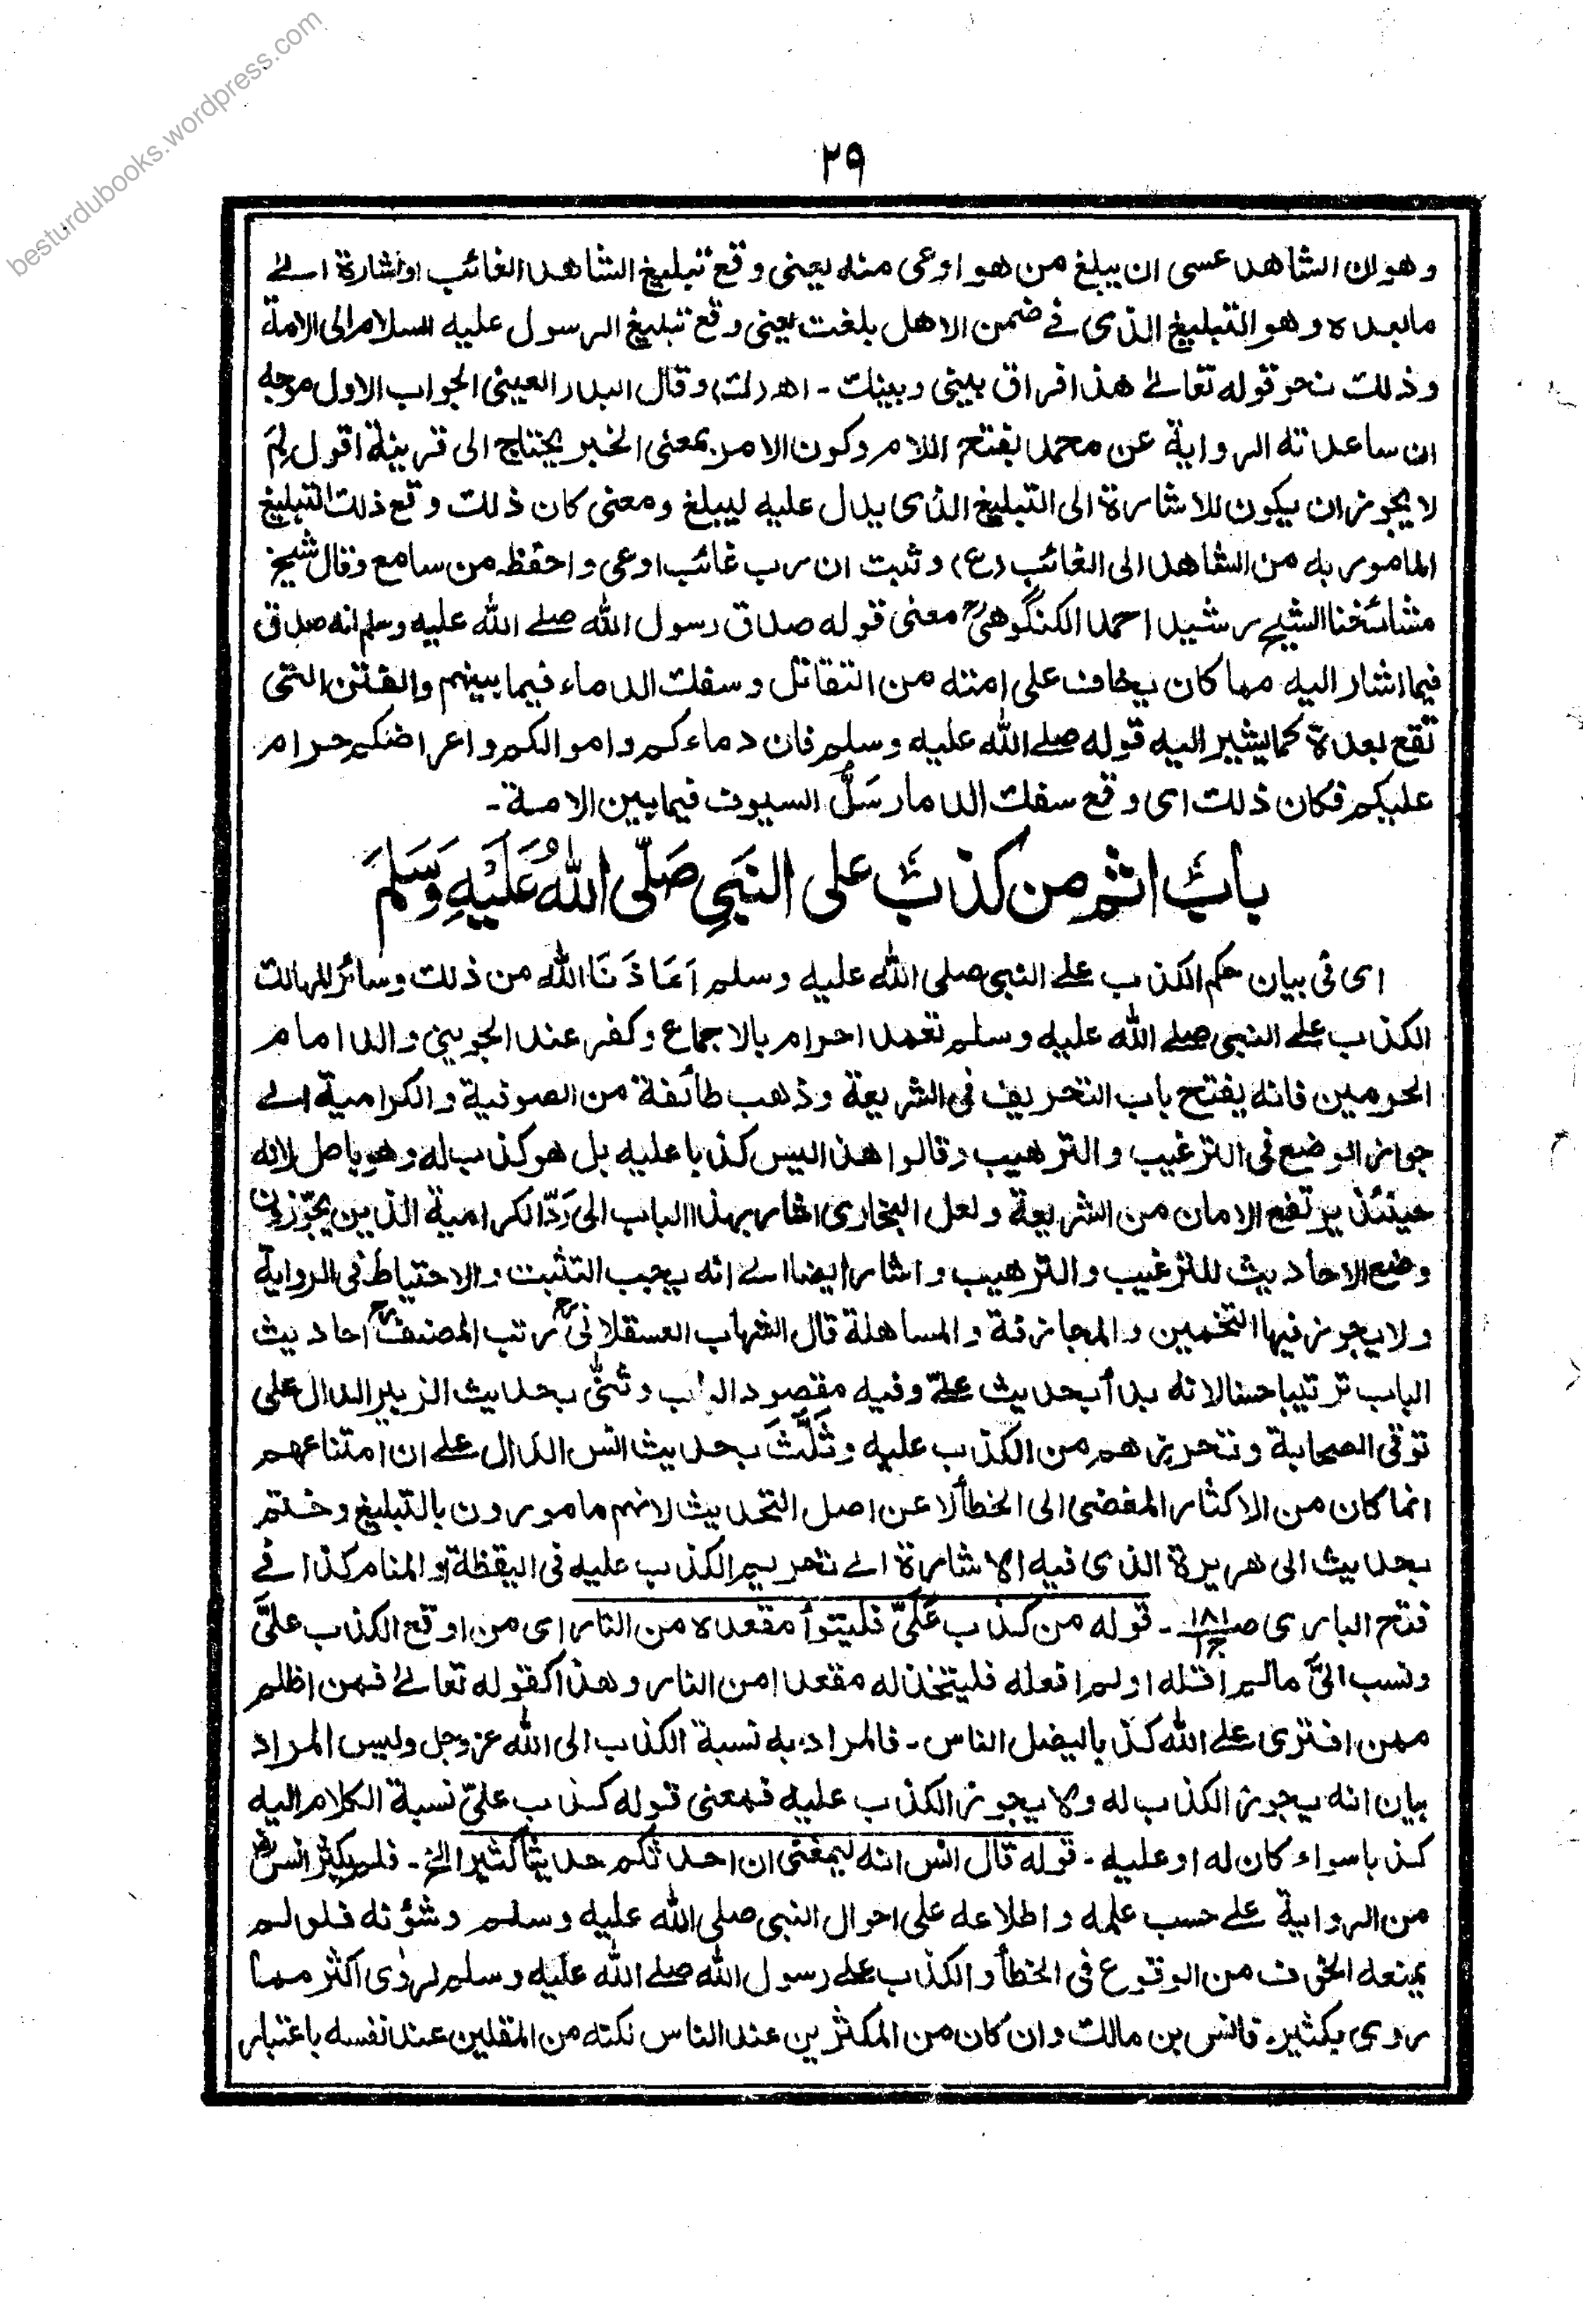 besturdubooks.wordpress.com
٢٩
وهو ان الشاهد عسى ان يبلغ من هو اوعى منه يعنى وقع تبليغ الشاهد الغائب او اشارة الے
مابعده وهو التبليغ الذى فے ضمن الاهل بلغت يعنى وقع تبليغ الرسول عليه السلام الى الامة
وذلك نحو قوله تعالےٰ هذا فراق بينى وبينك - اھ (ك) وقال البدر العينى الجواب الاول موجه
ان ساعدته الرواية عن محمد بفتح اللام وكون الامر بمعنى الخبر يحتاج الى قرينة اقول لِمَ
لا يجوز ان يكون للاشارة الى التبليغ الذى يدل عليه ليبلغ ومعنى كان ذلك وقع ذلك التبليغ
المامور به من الشاهد الى الغائب (ع) وثبت ان رب غائب اوعى واحفظ من سامع وقال شيخ
مشائخنا الشيخ رشيد احمد الكنگوهىؒ معنى قوله صدق رسول الله صلے الله عليه وسلم انه صدق
فيما اشار اليه مما كان يخاف على امته من التقاتل وسفك الدماء فيما بينهم والفتن التى
تقع بعدهٗ كما يشير اليه قوله صلے الله عليه وسلم فان دماءكم واموالكم واعراضكم حرام
عليكم فكان ذلك اى وقع سفك الدما رسَلُّ السيوف فيما بين الامة -
بابُ اثم من كذبَ على النَبىِ صَلّى اللهُ عَلَيْهِ وَسَلمَ
اى فى بيان حكم الكذب علے النبى صلى الله عليه وسلم اَعَاذَنَا الله من ذلك وسائر المهالك
الكذب علے النبى صلے الله عليه وسلم تعمدا حرام بالاجماع وكفر عند الجوينى والد امام
الحرمين فانه يفتح باب التحريف فى الشريعة وذهب طائفة من الصوفية والكرامية الے
جواز الوضع فى الترغيب والترهيب وقالوا هذا ليس كذبا عليه بل هو كذب له وهو باطل لانه
حينئذ يرتفع الامان من الشريعة ولعل البخارى اشار بهذا الباب الى رَدّ الكرامية الذين يجوّزون
وضع الاحاديث للترغيب والترهيب واشار ايضا الے انه يجب التثبت والاحتياط فى الرواية
ولا يجوز فيها التخمين والمجازفة والمساهلة قال الشهاب العسقلانىؒ رتب المصنفؒ احاديث
الباب ترتيبا حسنا لانه بدأ بحديث علےّ وفيه مقصود الباب وثنّٰى بحديث الزبير الدال على
توقى الصحابة وتحرزهم من الكذب عليه وثَلَّثَ بحديث انس الدال علے ان امتناعهم
انما كان من الاكثار المفضى الى الخطأ لا عن اصل التحديث لانهم مامورون بالتبليغ وختم
بحديث ابى هريرة الذى فيه الاشارة الے تحريم الكذب عليه فى اليقظة او المنام كذا فے
فتح البارى صـ١٨١ ج١ - قوله من كذب عَلَىّ فليتبوأ مقعده من النار اى من اوقع الكذب علىَّ
ونسب الىَّ مالم اقله او لم افعله فليتخذ له مقعدا من النار وهذا كقوله تعالےٰ فمن اظلم
ممن افترى علے الله كذبا ليضل الناس - فالمراد به نسبة الكذب الى الله عز وجل وليس المراد
بيان انه يجوز الكذب له ولا يجوز الكذب عليه فمعنى قوله كذب علىّ نسبة الكلام اليه
كذبا سواء كان له او عليه - قوله قال انس انه ليمنعنى ان احدثكم حديثا كثيرا الخ - فلم يكثر انسؓ
من الرواية علے حسب علمه واطلاعه على احوال النبى صلى الله عليه وسلم وشؤنه فلو لم
يمنعه الخوف من الوقوع فى الخطأ والكذب علے رسول الله صلے الله عليه وسلم لروٰى اكثر مما
روى بكثير، فانس بن مالك وان كان من المكثرين عند الناس لكنه من المقلين عند نفسه باعتبار